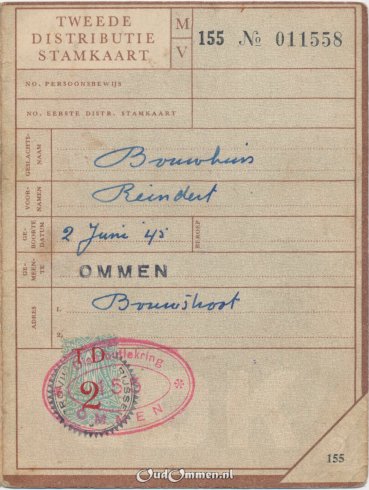 TWEEDE
DISTRIBUTIE
STAMKAART
M
V
155 No 011558
NO. PERSOONSBEWIJS
NO. EERSTE DISTR. STAMKAART
GESLACHTS-
NAAM
Bouwhuis
VOOR-
NAMEN
Reindert
GE-
BOORTE
DATUM
2 Juni '45
BEROEP
GE-
MEEN-
TE
OMMEN
ADRES
1.
2.
T.D.
2
OMMEN
155
OudOmmen.nl